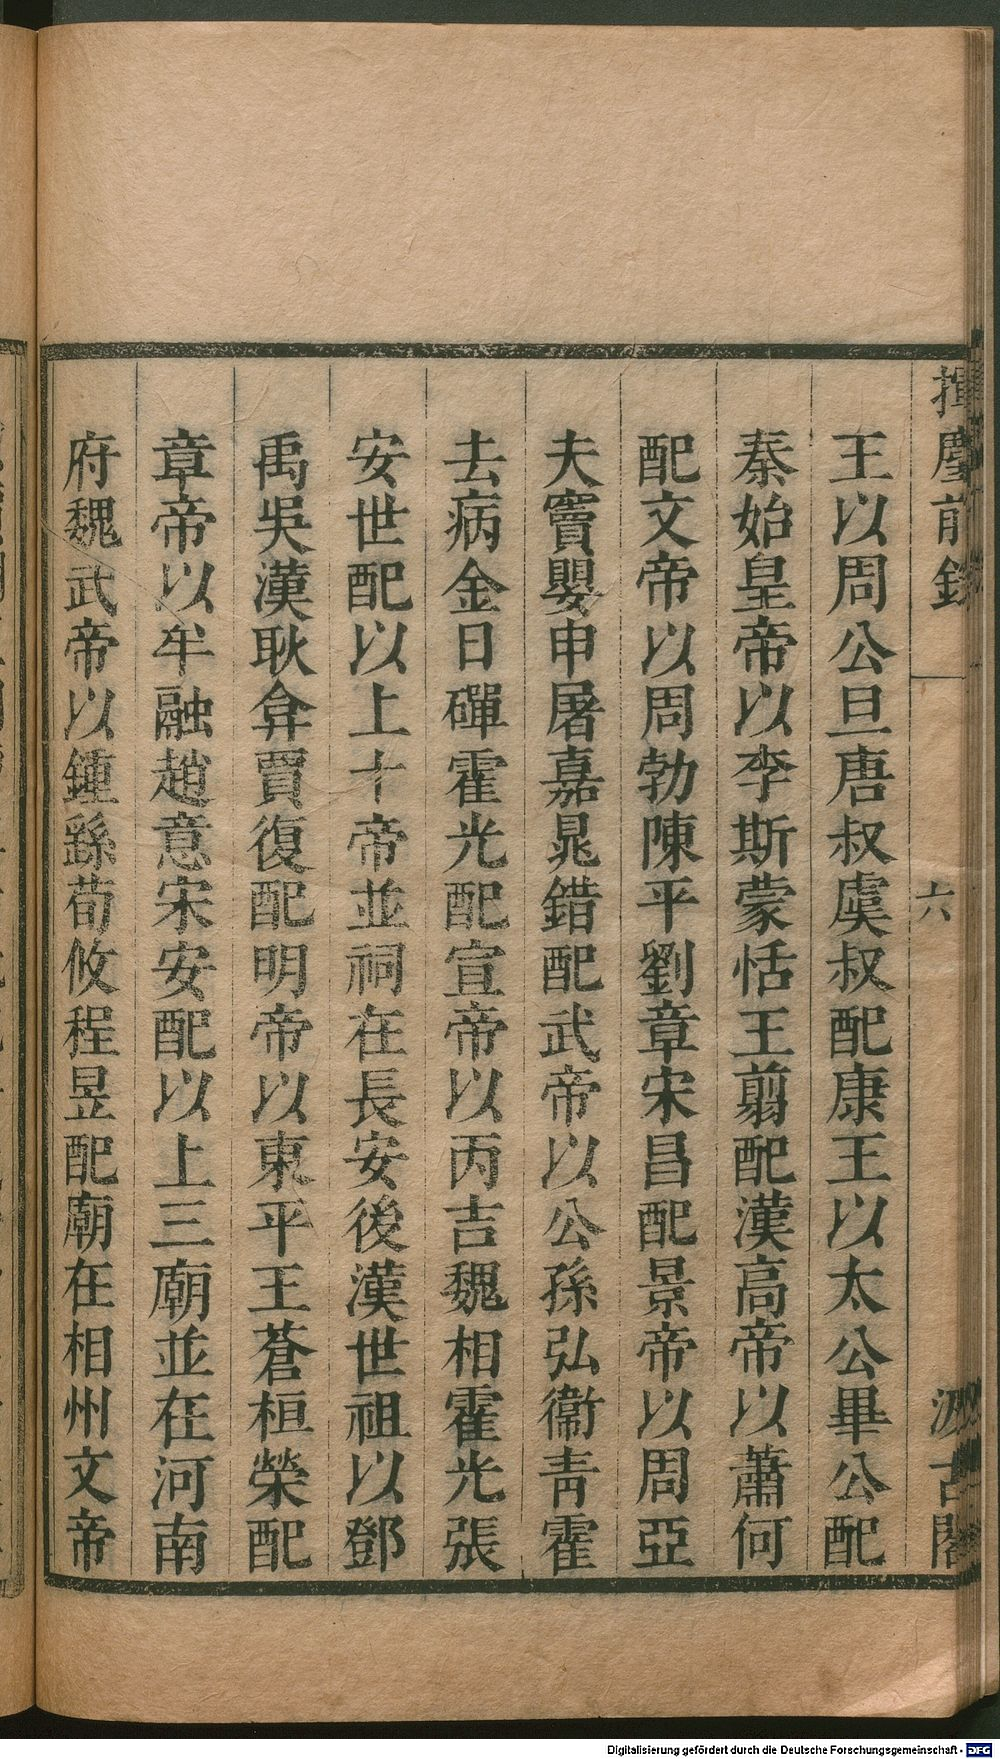 揮麈前錄 六 汲古閣
王以周公旦唐叔虞叔配康王以太公畢公配
秦始皇帝以李斯蒙恬王翦配漢高帝以蕭何
配文帝以周勃陳平劉章宋昌配景帝以周亞
夫竇嬰申屠嘉晁錯配武帝以公孫弘衞青霍
去病金日磾霍光配宣帝以丙吉魏相霍光張
安世配以上十帝並祠在長安後漢世祖以鄧
禹吳漢耿弇賈復配明帝以東平王蒼桓榮配
章帝以牟融趙意宋安配以上三廟並在河南
府魏武帝以鍾繇荀攸程昱配廟在相州文帝
Digitalisierung gefördert durch die Deutsche Forschungsgemeinschaft - DFG